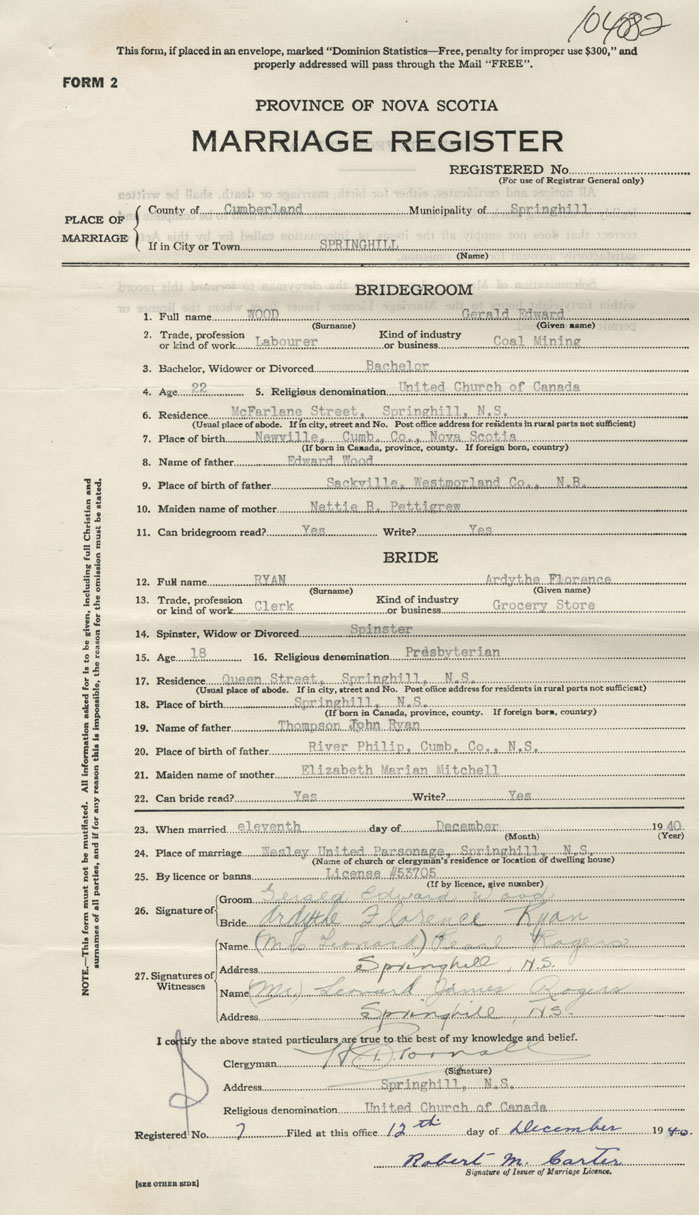 104682
This form, if placed in an envelope, marked "Dominion Statistics—Free, penalty for improper use $300," and
properly addressed will pass through the Mail "FREE".
FORM 2
PROVINCE OF NOVA SCOTIA
MARRIAGE REGISTER
REGISTERED No.
(For use of Registrar General only)
PLACE OF MARRIAGE
County of Cumberland Municipality of Springhill
If in City or Town SPRINGHILL
(Name)
BRIDEGROOM
1. Full name WOOD Gerald Edward
(Surname) (Given name)
2. Trade, profession or kind of work Labourer Kind of industry or business Coal Mining
3. Bachelor, Widower or Divorced Bachelor
4. Age 22 5. Religious denomination United Church of Canada
6. Residence McFarlane Street, Springhill, N.S.
(Usual place of abode. If in city, street and No. Post office address for residents in rural parts not sufficient)
7. Place of birth Newville, Cumb. Co., Nova Scotia
(If born in Canada, province, county. If foreign born, country)
8. Name of father Edward Wood
9. Place of birth of father Sackville, Westmorland Co., N.B.
10. Maiden name of mother Nettie B. Pettigrew
11. Can bridegroom read? Yes Write? Yes
BRIDE
12. Full name RYAN Ardythe Florence
(Surname) (Given name)
13. Trade, profession or kind of work Clerk Kind of industry or business Grocery Store
14. Spinster, Widow or Divorced Spinster
15. Age 18 16. Religious denomination Presbyterian
17. Residence Queen Street, Springhill, N.S.
(Usual place of abode. If in city, street and No. Post office address for residents in rural parts not sufficient)
18. Place of birth Springhill, N.S.
(If born in Canada, province, county. If foreign born, country)
19. Name of father Thompson John Ryan
20. Place of birth of father River Philip, Cumb. Co., N.S.
21. Maiden name of mother Elizabeth Marian Mitchell
22. Can bride read? Yes Write? Yes
23. When married eleventh day of December 1940
(Month) (Year)
24. Place of marriage Wesley United Parsonage, Springhill, N.S.
(Name of church or clergyman's residence or location of dwelling house)
25. By licence or banns License #53705
(If by licence, give number)
26. Signature of
Groom Gerald Edward Wood
Bride Ardythe Florence Ryan
27. Signatures of Witnesses
Name (Mrs Leonard) Pearl Rogers
Address Springhill, N.S.
Name (Mr) Leonard James Rogers
Address Springhill, N.S.
I certify the above stated particulars are true to the best of my knowledge and belief.
Clergyman
(Signature)
Address Springhill, N.S.
Religious denomination United Church of Canada
Registered No. 7 Filed at this office 12th day of December 1940.
Robert M. Carter
Signature of Issuer of Marriage Licence.
[SEE OTHER SIDE]
NOTE.—This form must not be mutilated. All information asked for is to be given, including full Christian and
surnames of all parties, and if for any reason this is impossible, the reason for the omission must be stated.